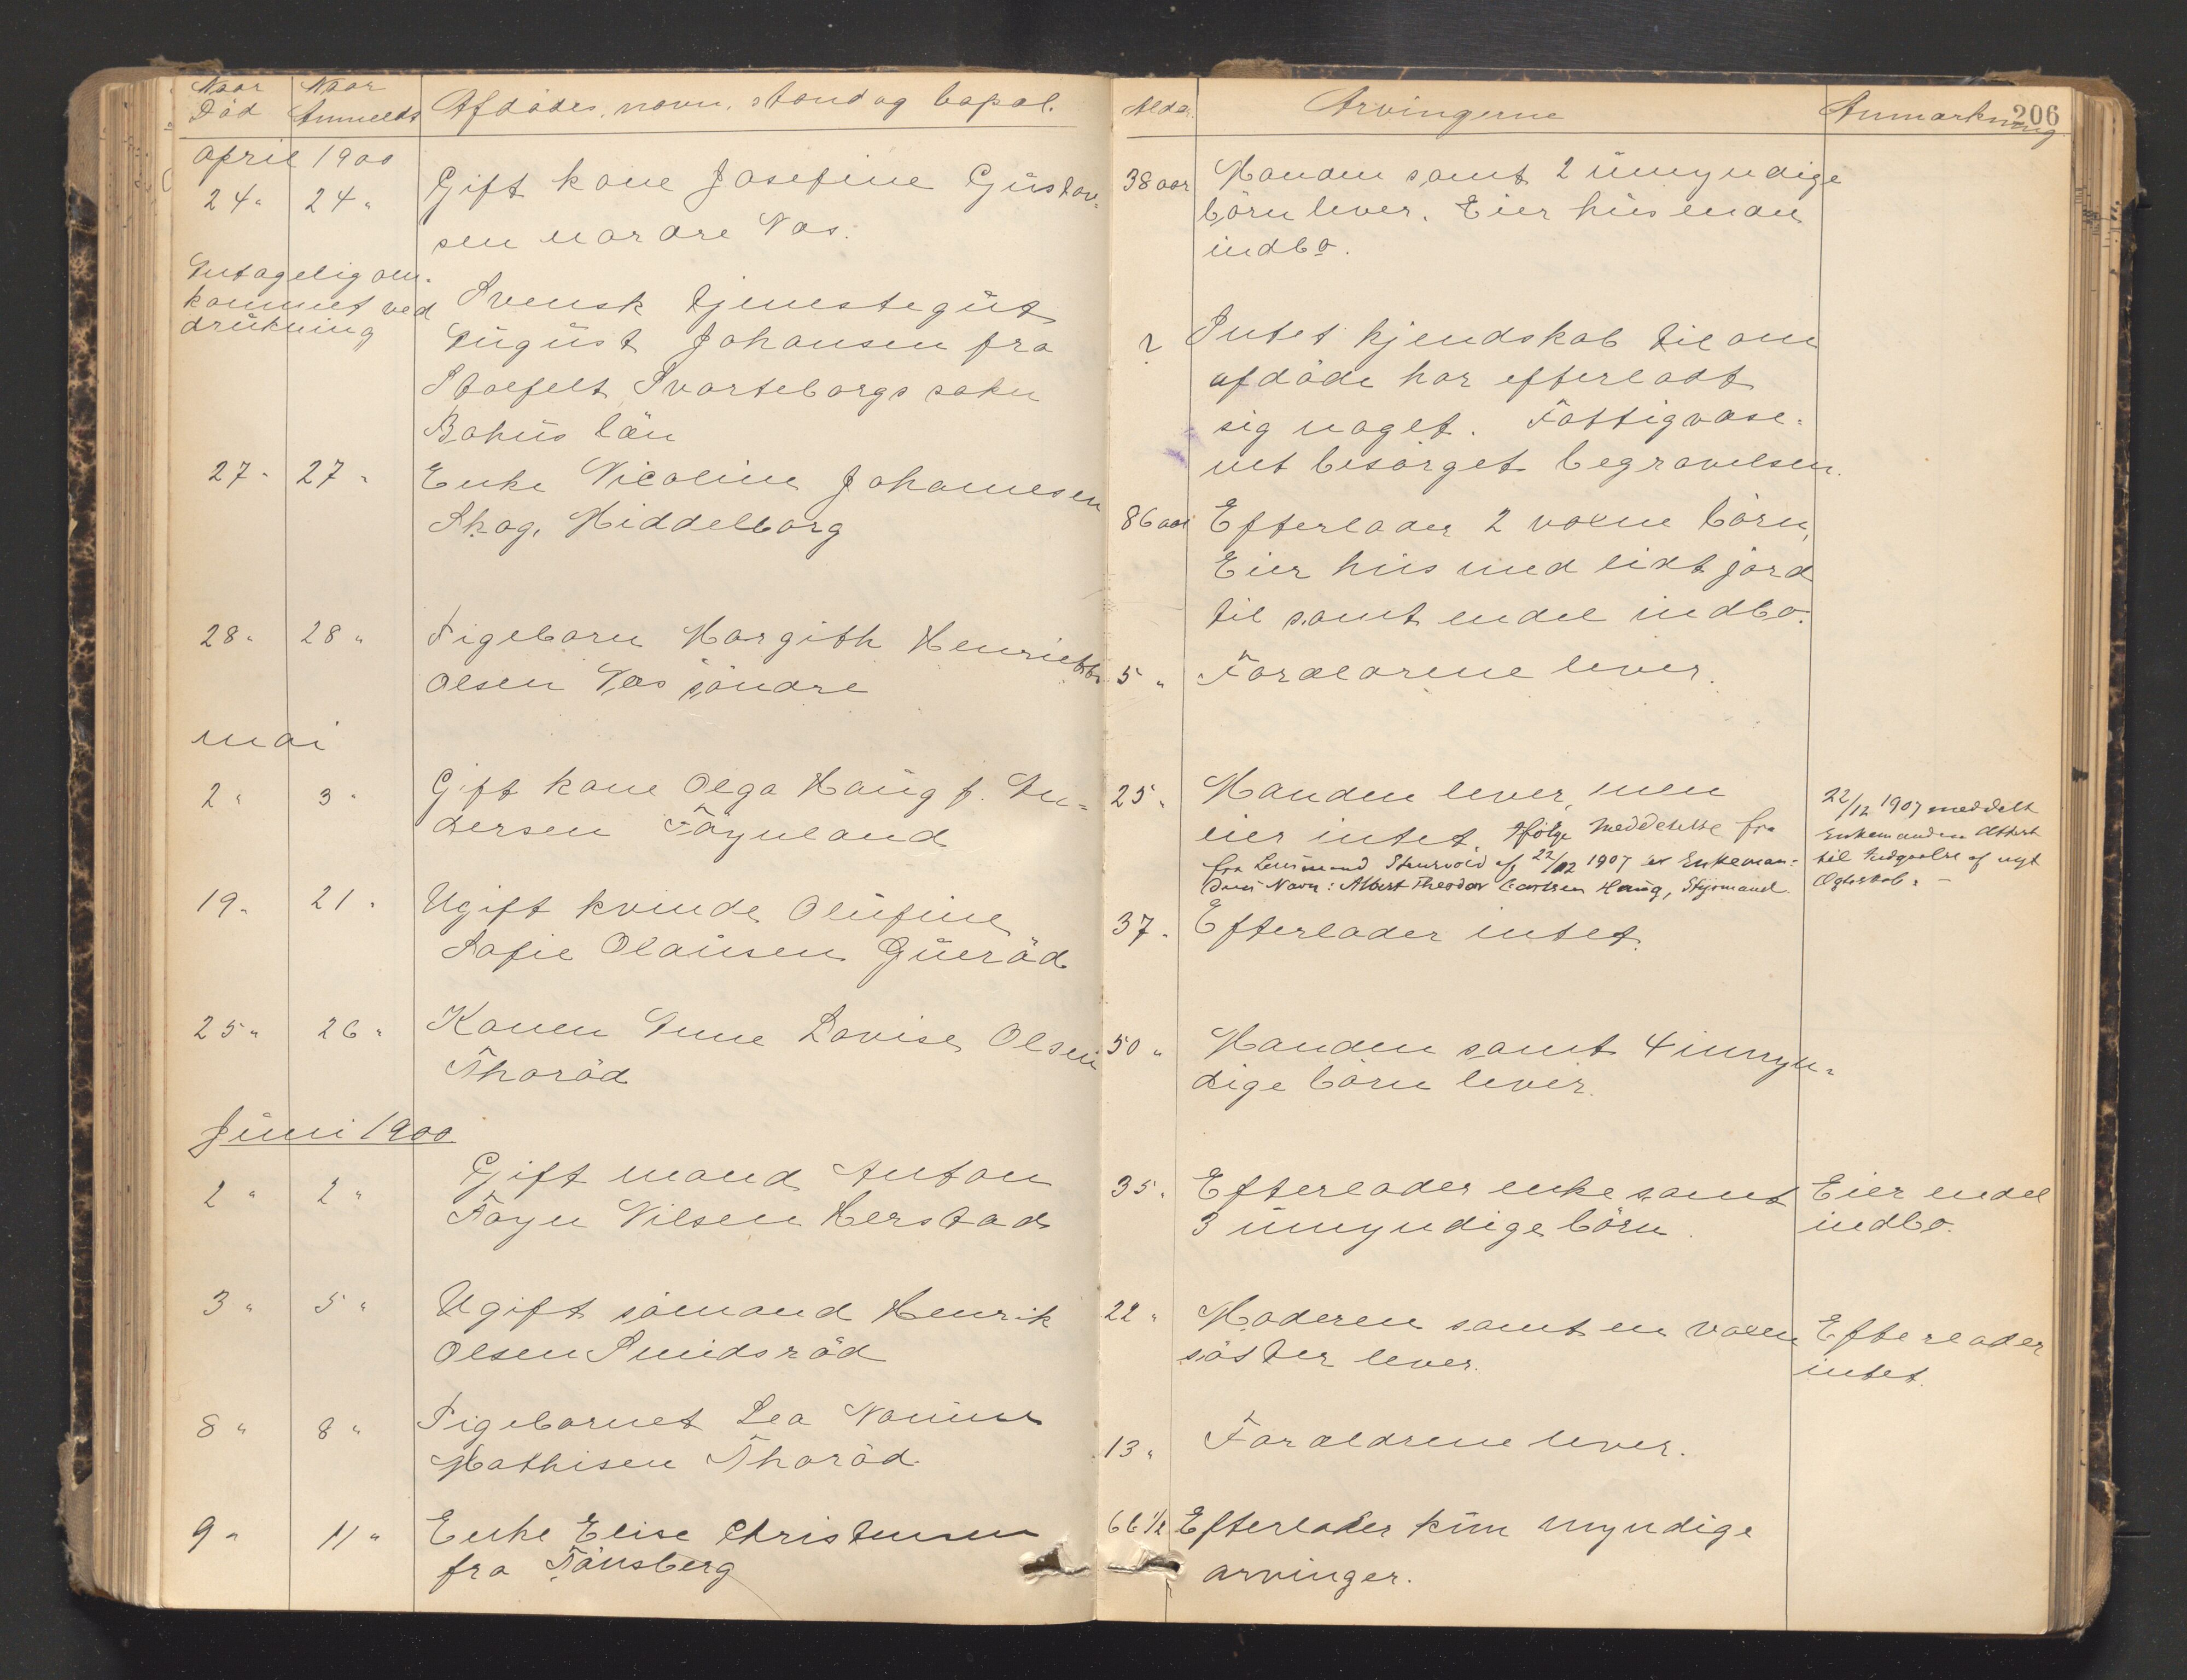 206
Naar Død
Naar Anmeldt
Afdødes navn, stand og bopæl.
Alder
Arvingerne
Anmærkning
April 1900
24 " 24 " Gift kone Josefine Gustav-
sen nordre Nes.
38 aar Manden samt 2 umyndige
børn lever. Eier hus endn
indbo.
Antagelig om-
kommet ved
drukning
Svensk tjenestegut
August Johansen fra
Svarteborgs sokn
Bohus län
? Intet kjendskab til om
afdøde har efterladt
sig noget. Fattigvæse-
net besørget begravelsen.
27 " 27 " Enke Nicoline Johannesen
Skog, Middelborg
86 aar Efterlader 2 voxne børn,
Eier hus med lidt jord
til samt endel indbo.
28 " 28 " Pigebarn Margith Henriette
Olsen Nes søndre
5 " Forældrene lever.
mai
2 " 3 " Gift kone Olga Haug f. An-
dersen Føynland
25 " Manden lever, men
eier intet. Ifølge Meddelelse fra
fra Lensmand af 22/12 1907 er Enkeman-
dens Navn: Albert Theodor Carlsen Haug, Styrmand.
22/12 1907 meddelt
Enkemanden Attest
til Indgaaelse af nyt
Ægteskab. –
19 " 21 " Ugift kvinde Olufine
Sofie Olausen Gueröd
37 " Efterlader intet.
25 " 26 " Konen Anne Lovise Olsen
Thoröd
50 " Manden samt 4 umyn-
dige børn lever.
Juni 1900
2 " 2 " Gift mand Anton
Føyn Nilsen Herstad
35 " Efterlader enke samt
3 umyndige børn.
Eier endel
indbo.
3 " 5 " Ugift sømand Henrik
Olsen Smidsröd
22 " Moderen samt en voxen
søster lever.
Efterlader
intet.
8 " 8 " Pigebarnet Lea Nanine
Mathisen Thoröd
13 " Forældrene lever.
9 " 11 " Enke Elise Christensen
fra Tönsberg
66 1/2 Efterlader kun myndige
arvinger.